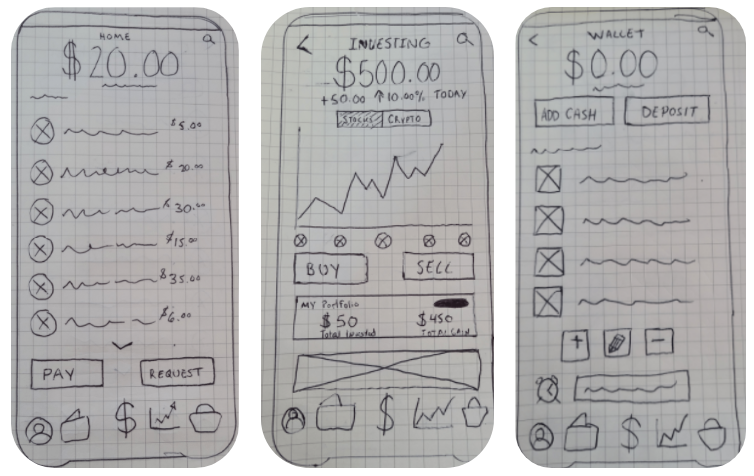 HOME
$20.00
$5.00
$20.00
$30.00
$15.00
$35.00
$6.00
PAY
REQUEST
$
INVESTING
$500.00
+50.00 ↑10.00% TODAY
STOCKS CRYPTO
BUY SELL
MY Portfolio
$50 $450
Total Invested TOTAL GAIN
$
WALLET
$0.00
ADD CASH DEPOSIT
+ −
$